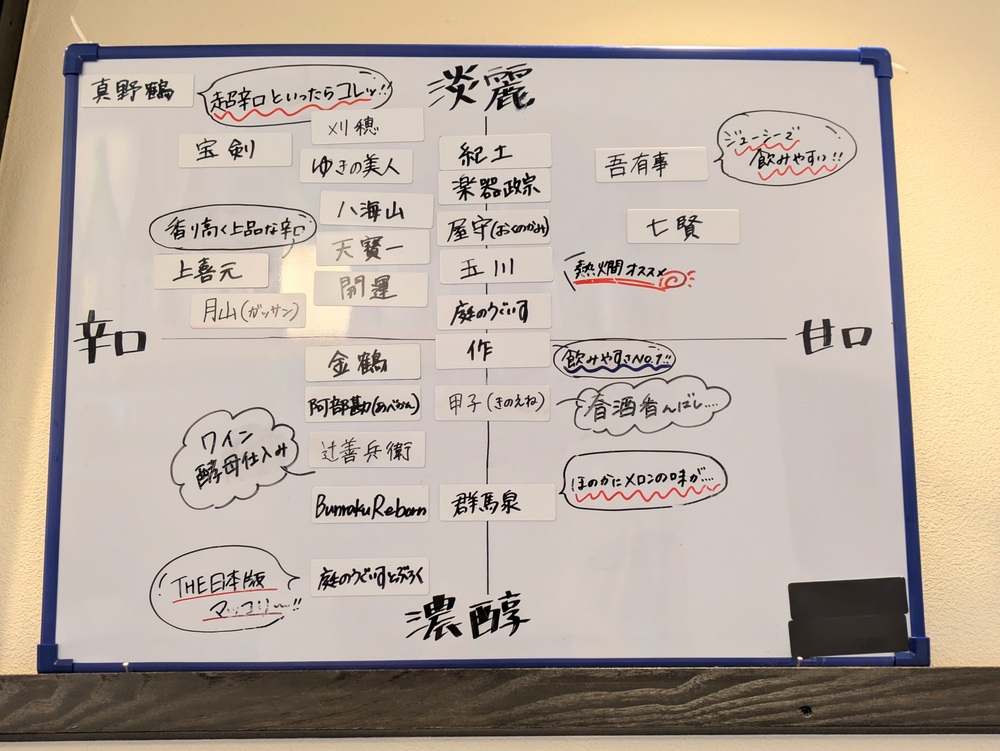 淡麗
真野鶴
超辛口といったらコレッ!!
刈穂
宝剣
ゆきの美人
紀土
吾有事
ジューシーで
飲みやすい!!
楽器政宗
八海山
屋守(おくのかみ)
七賢
香り高く上品な辛口
天寶一
上喜元
玉川
熱燗オススメ
開運
月山(ガッサン)
庭のうぐいす
辛口
甘口
作
飲みやすさNO.1!!
金鶴
阿部勘(あべかん)
甲子(きのえね)
春酒香んばし…
ワイン
酵母仕込み
辻善兵衛
ほのかにメロンの味が…
Bunraku Reborn
群馬泉
THE日本版
マッコリー!!
庭のうぐいすどぶろく
濃醇